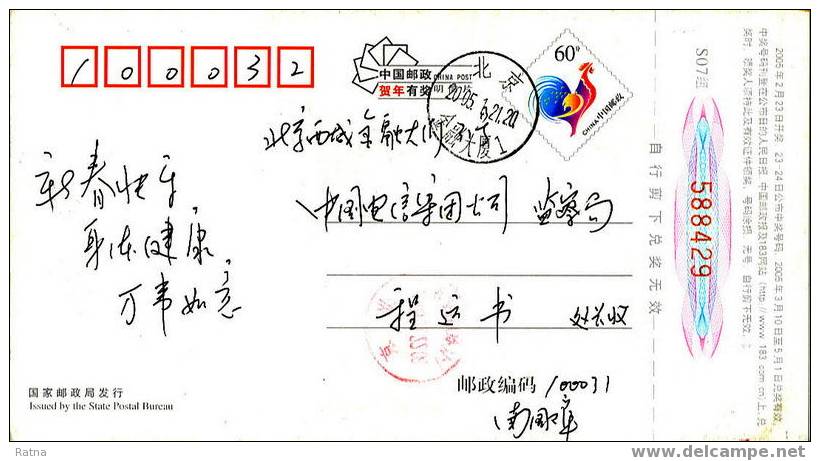 100032
中国邮政 CHINA POST
贺年有奖 明信片
60分
中国邮政 CHINA
北京
2005
金融大厦1
北京西城金融大街
新春快乐
身体健康
万事如意
中国电信集团公司 监察局
程运书 处长收
邮政编码 100031
国家邮政局发行
Issued by the State Postal Bureau
自行剪下兑奖无效
S07组
588429
2005年2月23日开奖 23-24日公布中奖号码 2005年3月10日至5月1日兑奖有效。
中奖号码刊登在公布日的人民日报、中国邮政报及183网站 (http://www.183.com.cn)上,兑
奖时,须奖人须持此及有效证件领奖,号码涂损、无号、自行剪下无效。
Ratna
www.delcampe.net